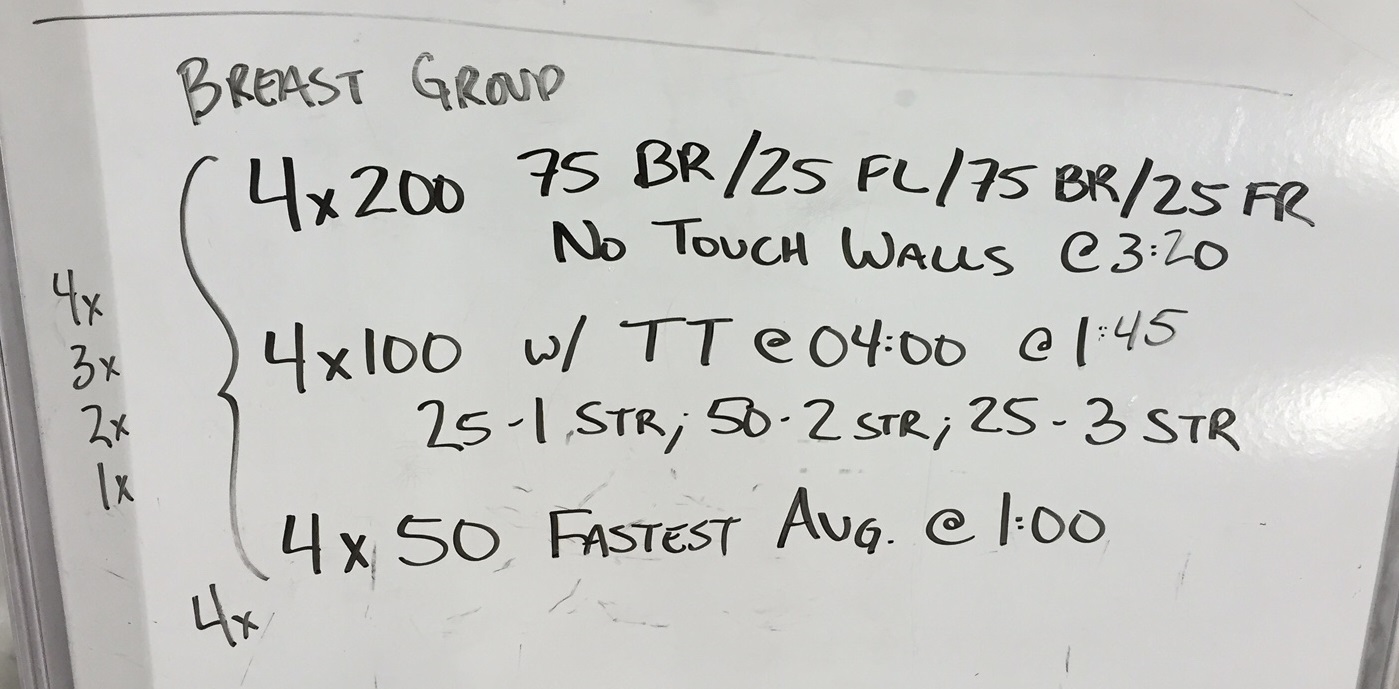 BREAST GROUP
4x200 75 BR/25 FL/75 BR/25 FR
NO TOUCH WALLS @3:20
4x
3x
2x
1x
4x100 w/ TT @ 04:00 @ 1:45
25-1 STR; 50-2 STR; 25-3 STR
4x50 FASTEST AVG. @ 1:00
4x